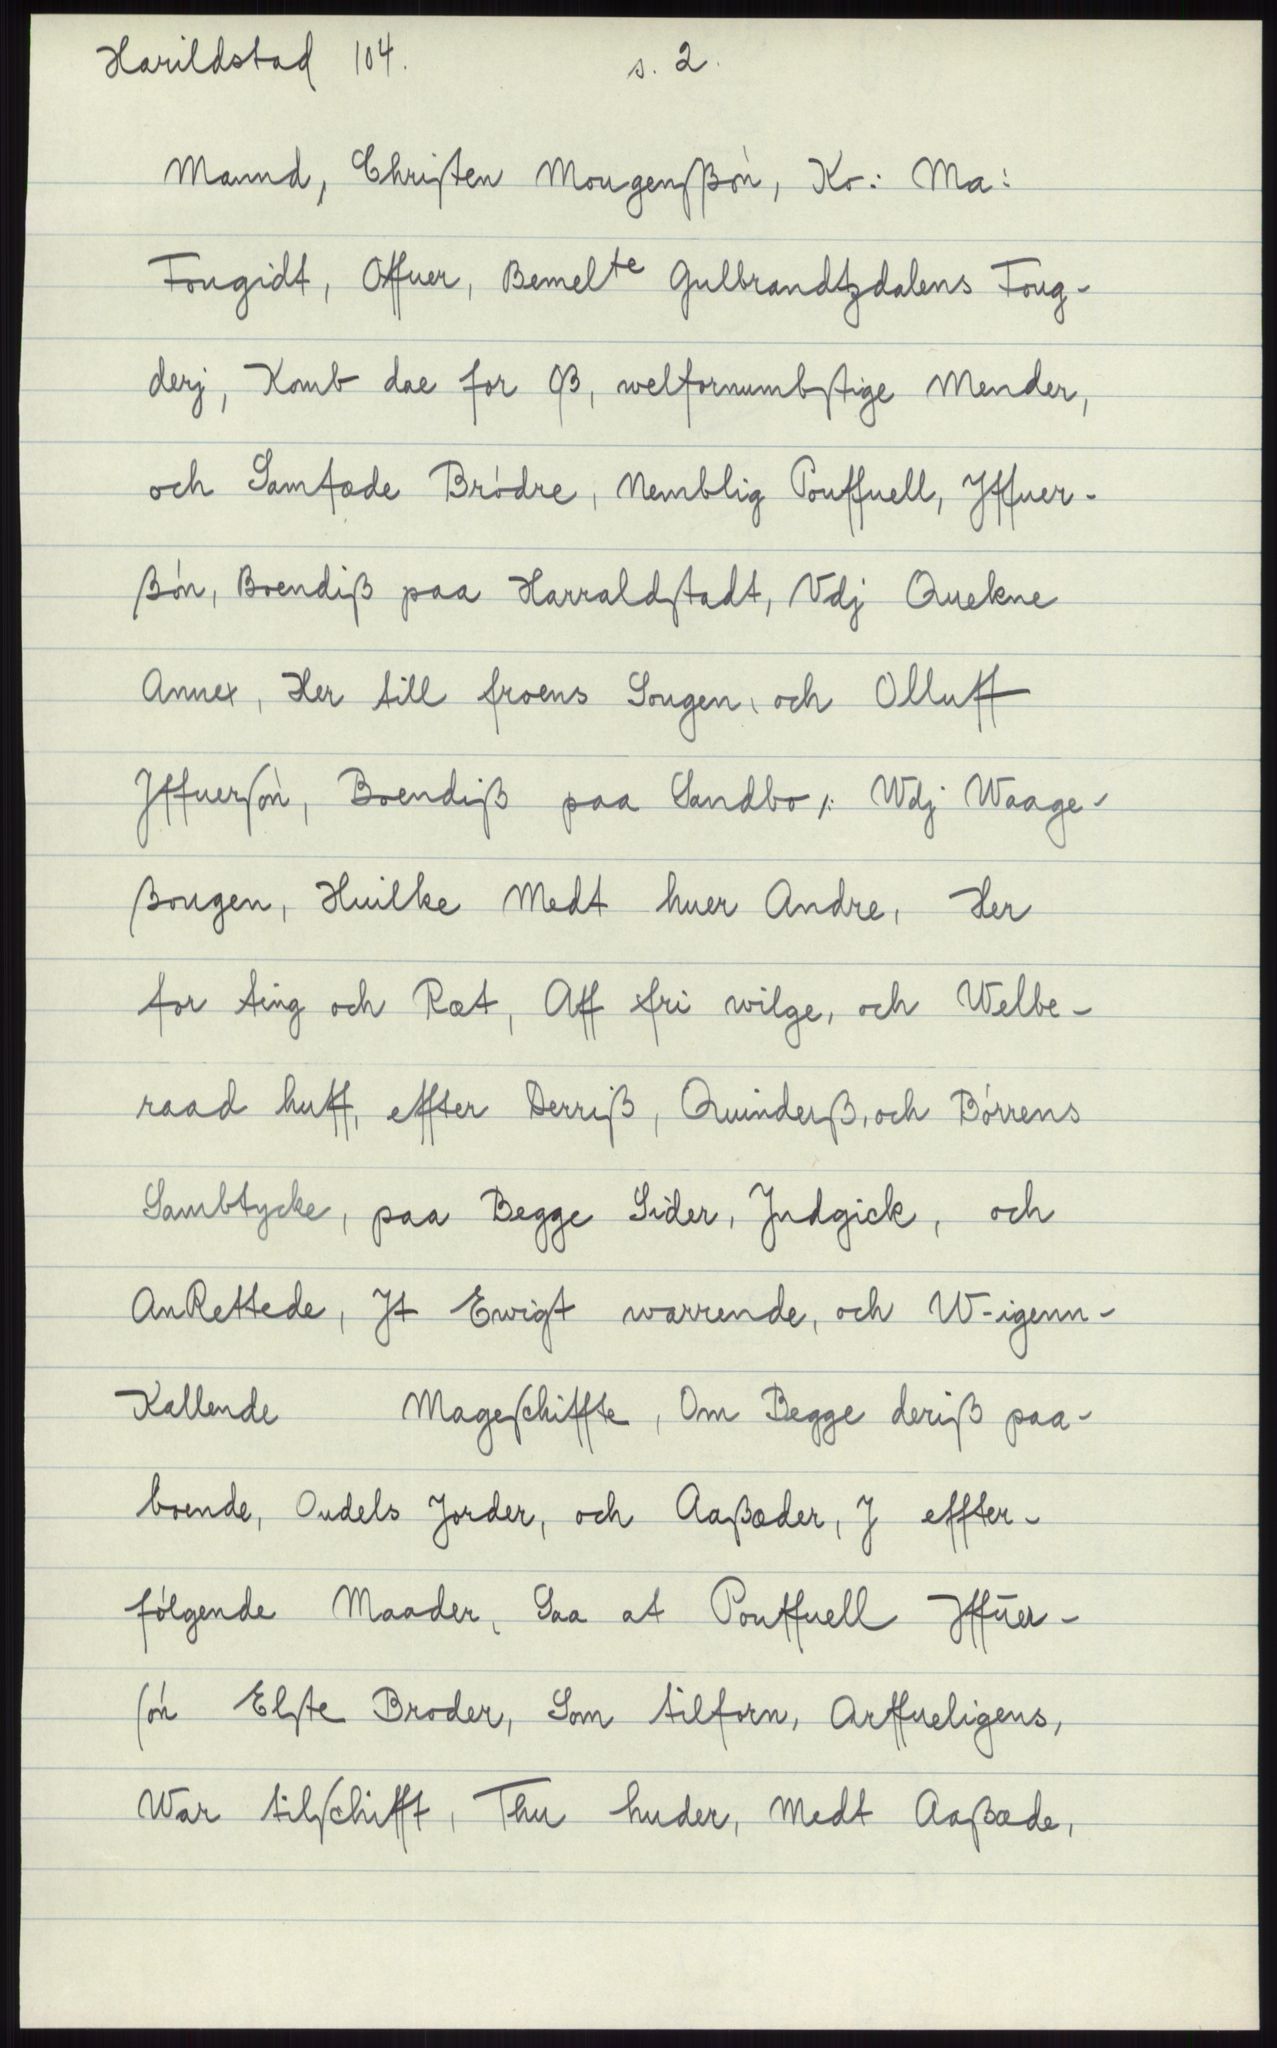 Harildstad 104. s. 2.
Mannd, Christen Mougensßón, Ko: Ma:
Fougidt, Offuer, Bemelte Gulbrandtzdalens Foug-
derj, Komb dae for Oß, welfornumbstige Mender,
och Samfæde Bródre, Nemblig Pouffuell, Jffuer-
ßón, Boendiß paa Harraldstadt, Vdj Quekne
Annex, Her till froens Sougen, och Olluff
Jffuersón, Boendiß paa Sandbo, Wdj Waage-
ßougen, Huilke Medt huer Andre, Her
for ting och Ræt, Aff fri wilge, och Welbe-
raad huff, effter Derriß, Quinderß, och Bórrens
Sambtycke, paa Begge Sider, Jndgick, och
AnRettede, Jt Ewigt warrende, och W-igenn-
Kallende Mageschiffte, Om Begge deriß paa-
boende, Oudels Jorder, och Aaßæder, J effter-
fólgende Maader, Saa at Pouffuell Jffúer-
són Elste Broder, Som tilforn, Arffueligens,
War tilschifft, Thu huder, Medt Aaßæde,